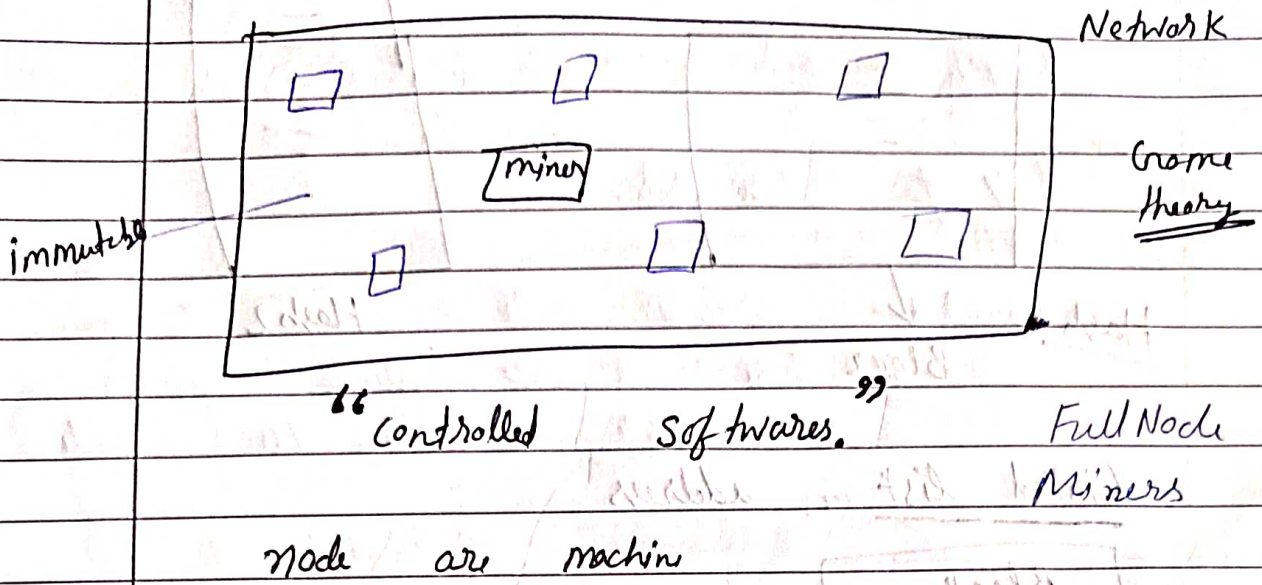 Network
miner
Game
theory
immutable
"Controlled Softwares."
Full Node
Miners
node are machine